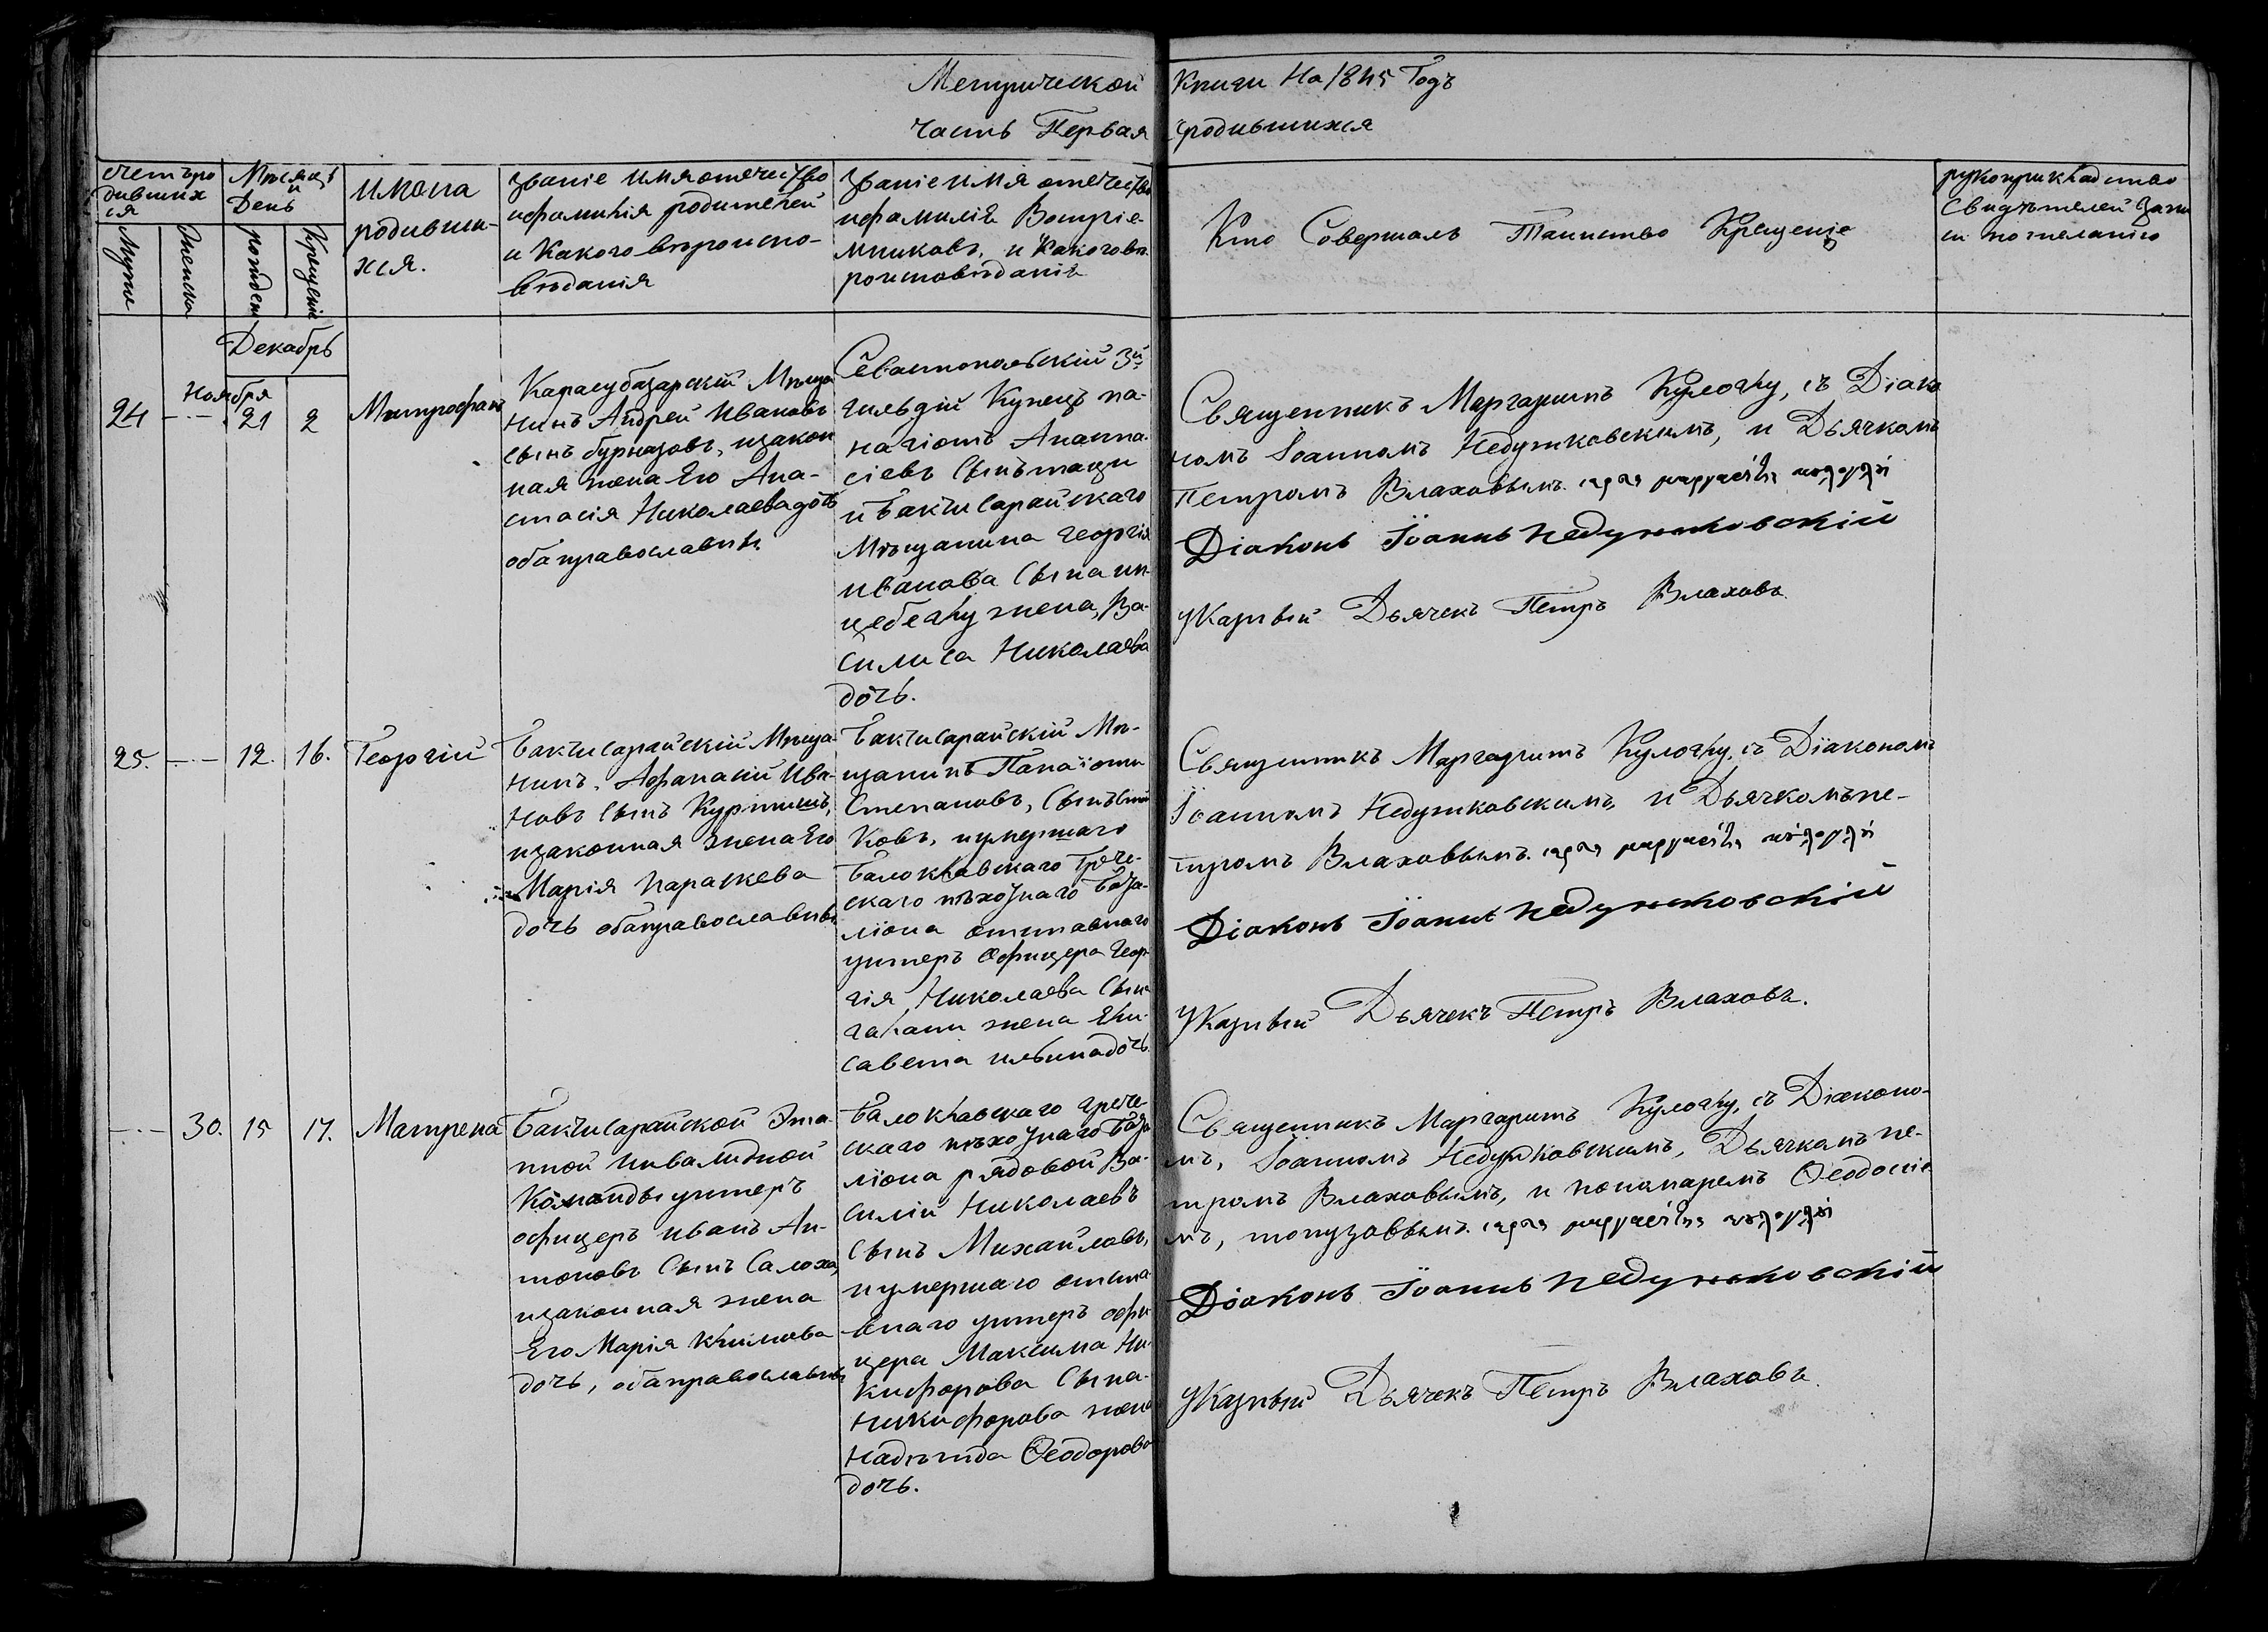 Метрической Книги На 1845 Годъ
часть Первая ородившихся
счетъро
дивших
ся
Мужеска
Женска
Мѣсяцъ
и
День
рожденія
Крещенія
имена
родивши-
хся.
званіе имя отечество
ифамилія родителей
и Какого вѣроиспо-
вѣданія
званіе имя отечество
ифамилія Воспріе-
мниковъ, и Какого вѣ-
роисповѣданія
Кто Совершалъ Таинство Крещеніе
рукоприкладство
Свидѣтелей запи
си пожеланію
Декабрь
Ноября
24 — 21 2
Митрофанъ
Карасубазарскій Мѣща
нинъ Андрей Ивановъ
сынъ бурназовъ, изакон
ная жена Его Ана-
стасія Николаевадочь
оба православны
Севастопольскій 3й
гильдіи Купецъ па-
нагіотъ Анаста-
сіевъ Сынъ
и Бахчисарайскаго
Мѣщанина георгія
иванова Сына
жена, Ва-
силиса Николаева
дочь.
Священникъ Маргаритъ Кулочку, съ Діако
номъ Іоанномъ Недужковскимъ, и Дьячкомъ
Петромъ Влаховымъ.
Діаконъ Іоаннъ Недужковскій
указный Дьячекъ Петръ Влаховъ.
25. — 12. 16.
Георгій
Бахчисарайскій Мѣща-
нинъ, Афанасій Ива-
новъ Сынъ Куртишъ,
изаконная жена Его
Марія Параскева
дочь оба православны
Бахчисарайскій Мѣ-
щанинъ Панаіоти
Степановъ, Сынъ
ковъ, иумершаго
Балоклавскаго Грече-
скаго пѣхотнаго Бата-
ліона отставнаго
унтеръ Офицера Геор-
гія Николаева Сына
жена Ели-
савета ильинадочь.
Священникъ Маргаритъ Кулочку, съ Діакономъ
Іоанномъ Недужковскимъ, и Дьячкомъ Пе-
тромъ Влаховымъ.
Діаконъ Іоаннъ Недужковскій
указный Дьячекъ Петръ Влаховъ.
— 30. 15 17.
Матрена
Бахчисарайской Эта-
пной Инвалидной
Команды унтеръ
офицеръ иванъ Ан-
тоновъ Сынъ Салоха,
изаконная жена
Его Марія Климова
дочь, оба православны
Балоклавскаго грече-
скаго пѣхотнаго бата
ліона рядовой Ва-
силій Николаевъ
Сынъ Михайловъ,
иумершаго отста-
внаго унтеръ офи-
цера Максима Ни-
кифорова Сына-
Никифорова жена
Надѣжда Ѳеодорова
дочь.
Священникъ Маргаритъ Кулочку, съ Діаконо-
мъ, Іоанномъ Недужковскимъ, Дьячкомъ пе-
тромъ Влаховымъ, и пономаремъ Ѳеодосіе
мъ, топузовымъ.
Діаконъ Іоаннъ Недужковскій
указный Дьячекъ Петръ Влаховъ.